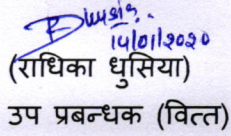 14/01/2020
(राधिका धुसिया)
उप प्रबन्धक (वित्त)